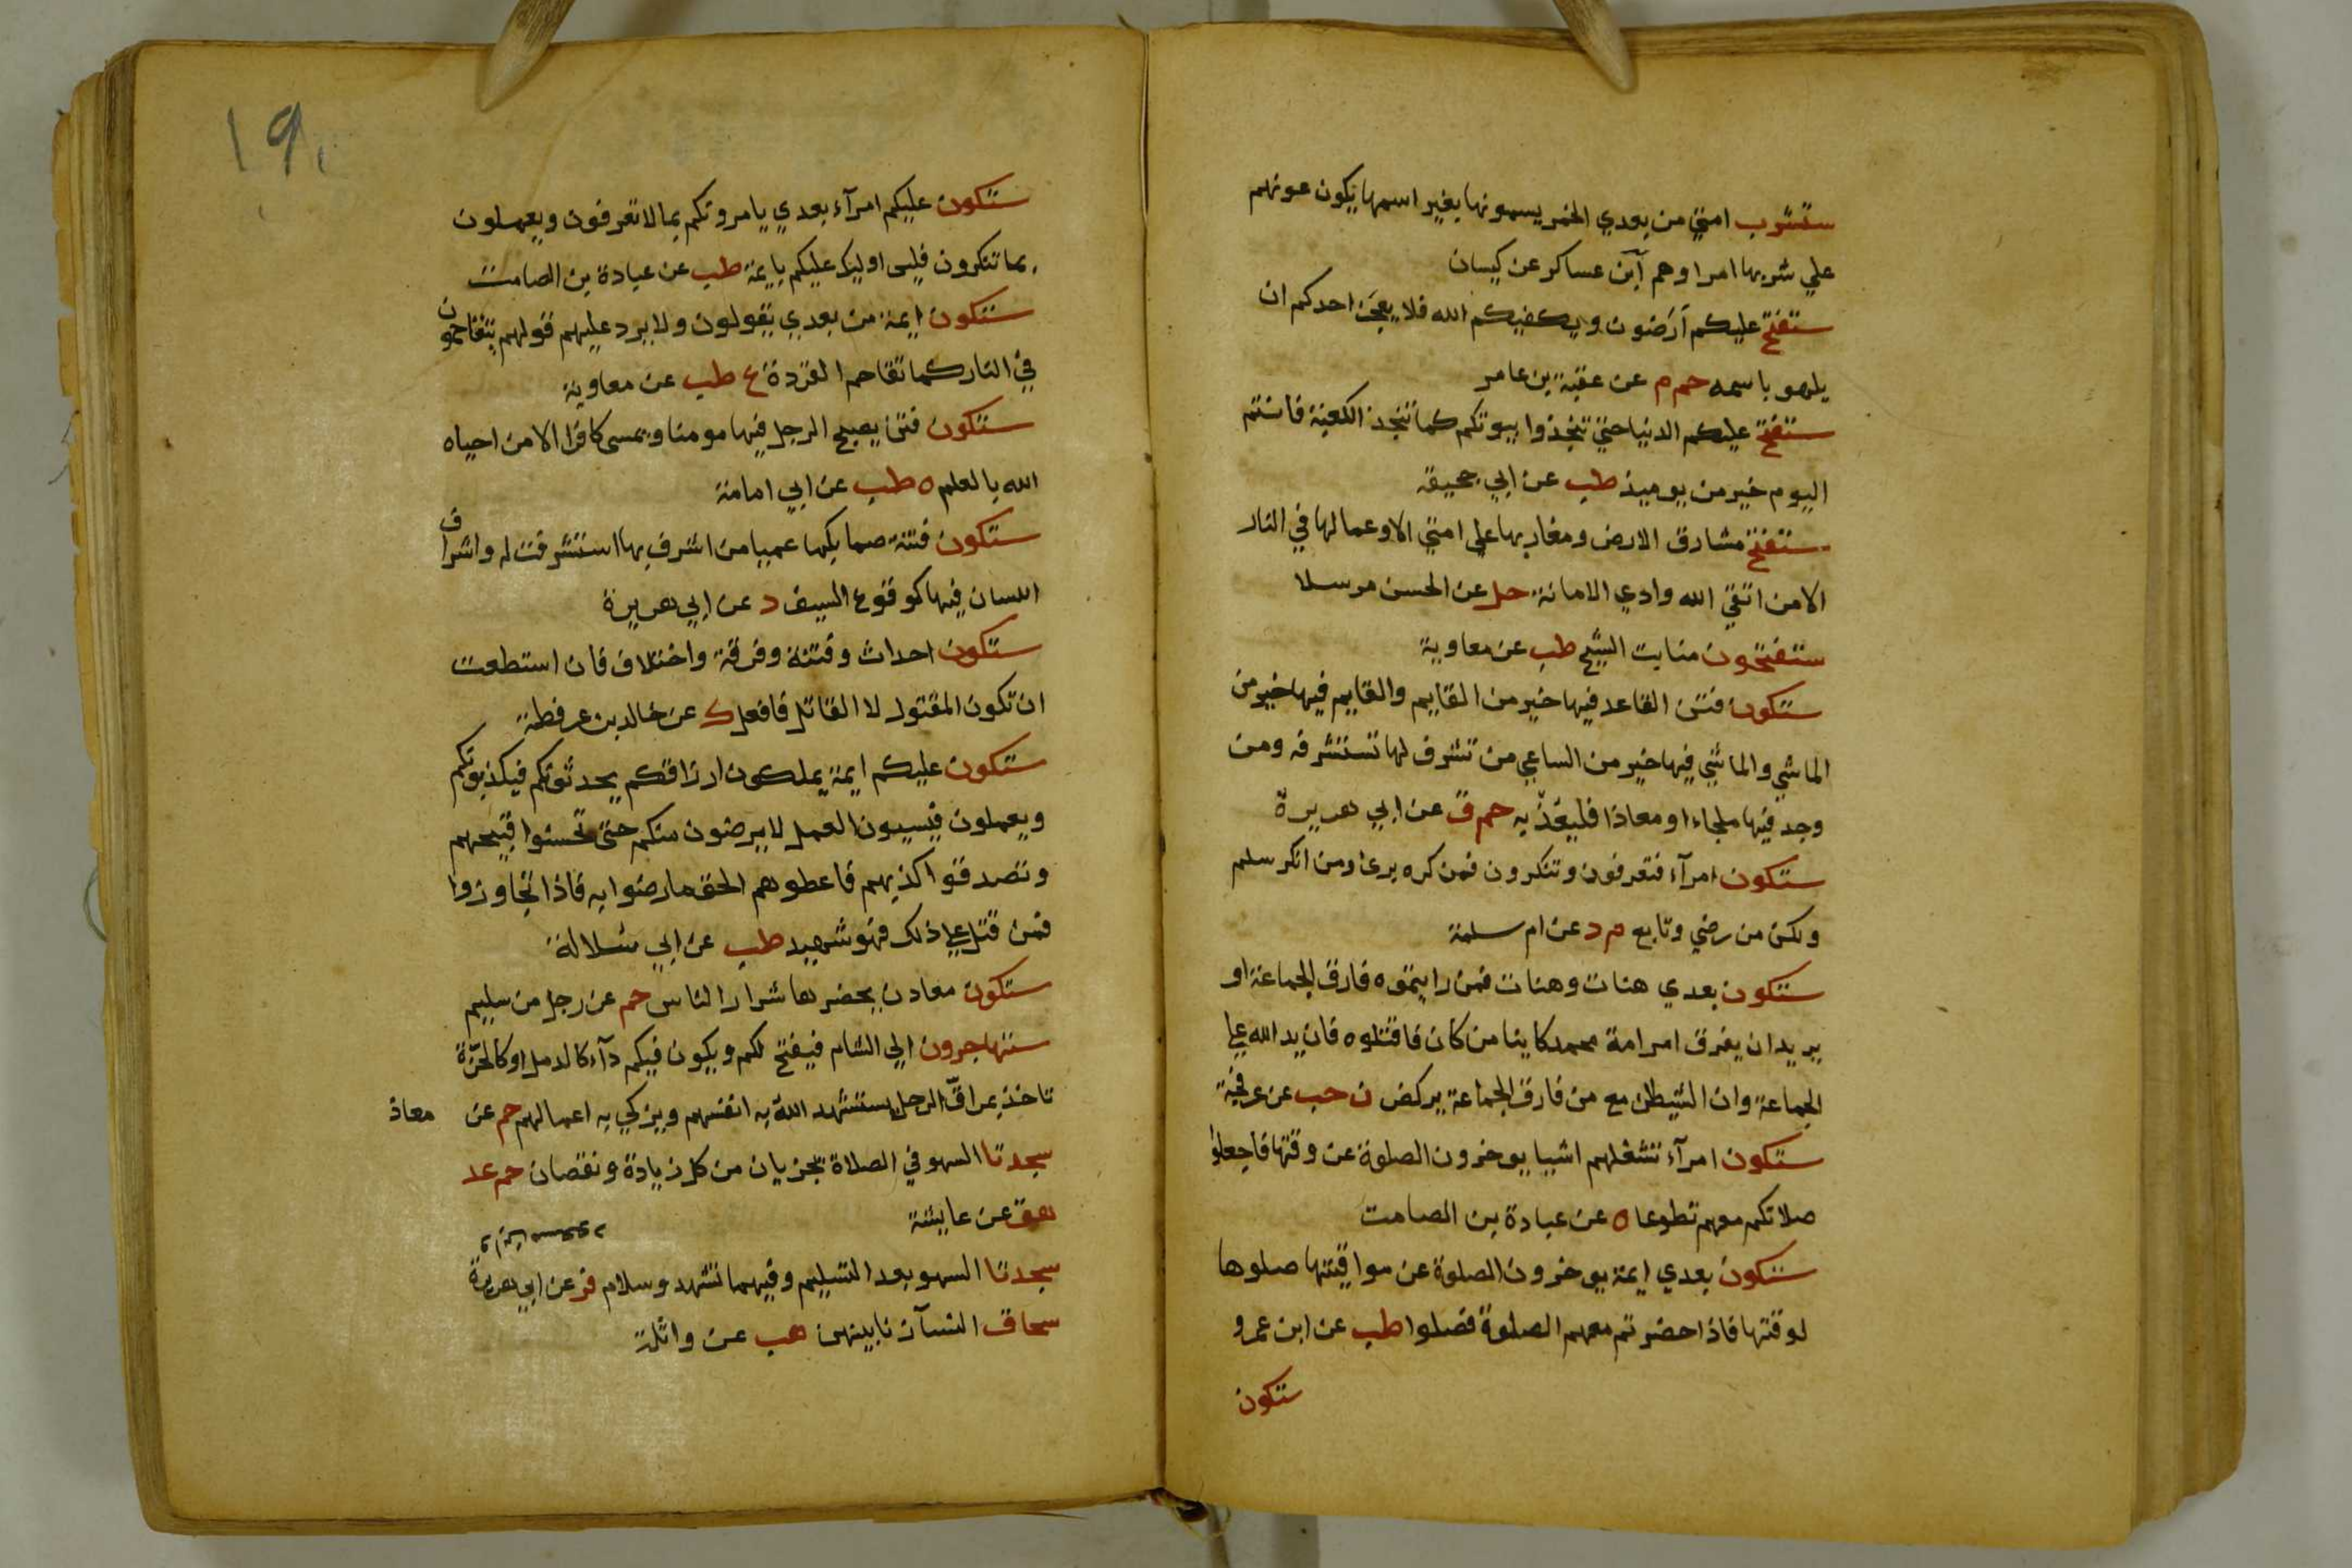 ستشرب امتي من بعدي الخمر يسمونها بغير اسمها يكون عونهم
علي شربها امراوهم ابن عساكر عن كيسان
ستفتح عليكم ارضون ويكفيكم الله فلا يعجز احدكم ان
يلهو باسهمه حم م عن عقبة بن عامر
ستفتح عليكم الدنيا حتي تنجدوا بيوتكم كما تنجد الكعبة فانتم
اليوم خير من يوميذ طب عن ابي جحيفة
ستفتح مشارق الارض ومغاربها علي امتي الا وعمالها في النار
الا من اتقي الله وادي الامانة حل عن الحسن مرسلا
ستفتحون منابت الشيح طب عن معاوية
ستكون فتن القاعد فيها خير من القايم والقايم فيها خير من
الماشي والماشي فيها خير من الساعي من تشرف لها تستشرفه ومن
وجد فيها ملجاء او معاذا فليعذ به حم ق عن ابي هريرة
ستكون امرآء فتعرفون وتنكرون فمن كره برئ ومن انكر سلم
ولكن من رضي وتابع م د عن ام سلمة
ستكون بعدي هنات وهنات فمن رايتموه فارق الجماعة او
يريد ان يفرق امر امة محمد كاينا من كان فاقتلوه فان يد الله علي
الجماعة وان الشيطان مع من فارق الجماعة يركض ن حب عن عرفجة
ستكون امرآء تشغلهم اشيا يوخرون الصلوة عن وقتها فاجعلوا
صلاتكم معهم تطوعا ه عن عبادة بن الصامت
ستكون بعدي ايمة يوخرون الصلوة عن مواقيتها صلوها
لوقتها فاذا حضرتم معهم الصلوة فصلوا طب عن ابن عمرو
ستكون
١٩٠
ستكون عليكم امرآء بعدي يامرونكم بما لا تعرفون ويعملون
بما تنكرون فليس اوليك عليكم بايمة طب عن عبادة بن الصامت
ستكون ايمة من بعدي يقولون ولا يرد عليهم قولهم يتقاحمون
في النار كما تقاحم القردة ع طب عن معاوية
ستكون فتن يصبح الرجل فيها مومنا ويمسي كافرا الا من احياه
الله بالعلم ه طب عن ابي امامة
ستكون فتنة صما بكما عميا من اشرف بها استشرفت له واشراف
اللسان فيها كوقوع السيف د عن ابي هريرة
ستكون احداث وفتنة وفرقة واختلاف فان استطعت
ان تكون المقتول لا القاتل فافعل ك عن خالد بن عرفطة
ستكون عليكم ايمة يملكون ارزاقكم يحدثونكم فيكذبونكم
ويعملون فيسيون العمل لا يرضون منكم حتي تحسنوا قبيحهم
وتصدقوا كذبهم فاعطوهم الحق ما رضوا به فاذا تجاوزوا
فمن قتل علي ذلك فهو شهيد طب عن ابي سلالة
ستكون معادن يحضرها شرار الناس حم عن رجل من سليم
ستهاجرون الي الشام فيفتح لكم ويكون فيكم دآء كالدمل او كالحزة
تاخذ بمراق الرجل يستشهد الله به انفسهم ويزكي به اعمالهم حم عن معاذ
سجدتا السهو في الصلاة تجزيان من كل زيادة ونقصان حم عد
هق عن عايشة
سجدتا السهو بعد التسليم وفيهما تشهد وسلام فر عن ابي هريرة
سحاق النسآء زنا بينهن هب عن واثلة